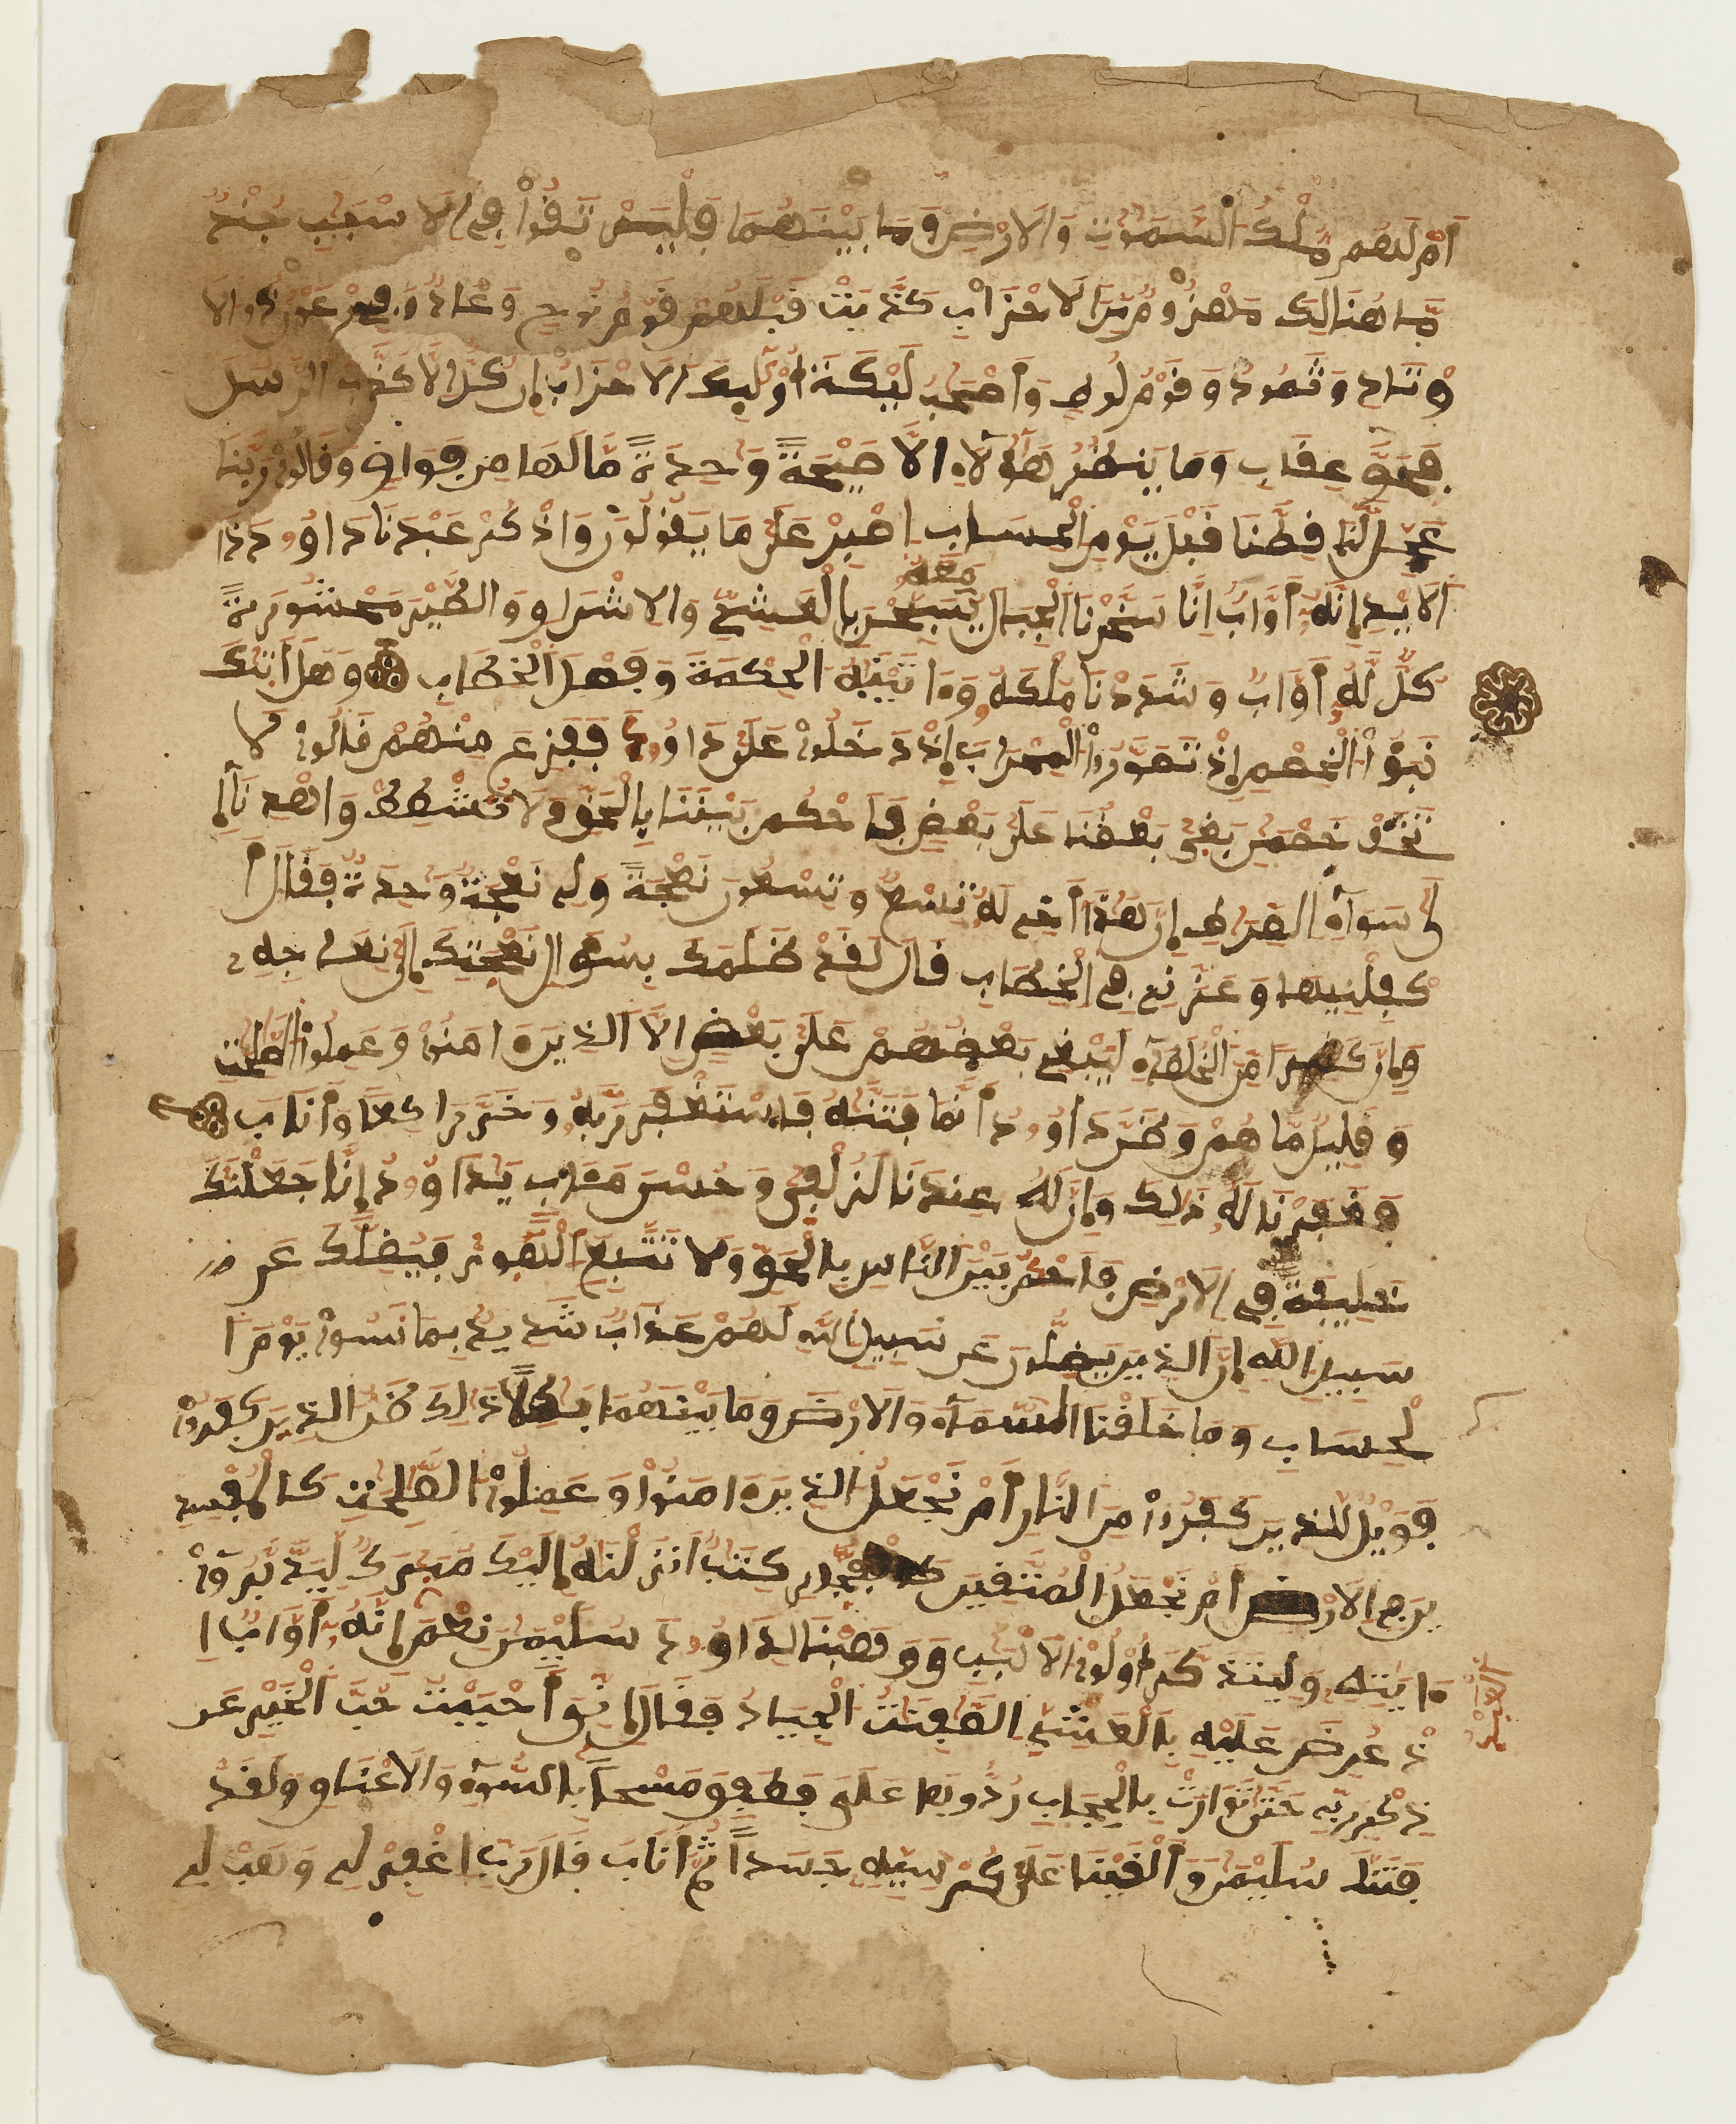 أَمْ لَهُم مُّلْكُ السَّمَٰوَٰتِ وَالَارْضِ وَمَا بَيْنَهُمَا فَلْيَرْتَقُواْ فِي الَاسْبَٰبِ جُندٞ
مَّا هُنَالِكَ مَهْزُومٞ مِّنَ الَاحْزَابِ كَذَّبَتْ قَبْلَهُمْ قَوْمُ نُوحٖ وَعَادٞ وَفِرْعَوْنُ ذُو الَا
وْتَادِ وَثَمُودُ وَقَوْمُ لُوطٖ وَأَصْحَٰبُ لَيْكَةَ أُوْلَٰٓئِكَ الَاحْزَابُ إِن كُلٌّ اِلَّا كَذَّبَ الرُّسُلَ
فَحَقَّ عِقَابِ وَمَا يَنظُرُ هَٰٓؤُلَآءِ الَّا صَيْحَةٗ وَٰحِدَةٗ مَّا لَهَا مِن فَوَاقٖ وَقَالُواْ رَبَّنَا
عَجِّل لَّنَا قِطَّنَا قَبْلَ يَوْمِ الْحِسَابِ اصْبِرْ عَلَىٰ مَا يَقُولُونَ وَاذْكُرْ عَبْدَنَا دَاوُۥدَ ذَا
الَايْدِ إِنَّهُۥٓ أَوَّابٌ اِنَّا سَخَّرْنَا الْجِبَالَ مَعَهُۥ يُسَبِّحْنَ بِالْعَشِيِّ وَالِاشْرَاقِ وَالطَّيْرَ مَحْشُورَةٗ
كُلّٞ لَّهُۥٓ أَوَّابٞ وَشَدَدْنَا مُلْكَهُۥ وَءَاتَيْنَٰهُ الْحِكْمَةَ وَفَصْلَ الْخِطَابِ وَهَلَ اَتَىٰكَ
نَبَؤُاْ الْخَصْمِ إِذْ تَسَوَّرُواْ الْمِحْرَابَ إِذْ دَخَلُواْ عَلَىٰ دَاوُۥدَ فَفَزِعَ مِنْهُمْ قَالُواْ لَا
تَخَفْ خَصْمَٰنِ بَغَىٰ بَعْضُنَا عَلَىٰ بَعْضٖ فَاحْكُم بَيْنَنَا بِالْحَقِّ وَلَا تُشْطِطْ وَاهْدِنَآ إِ
لَىٰ سَوَآءِ الصِّرَٰطِ إِنَّ هَٰذَآ أَخِي لَهُۥ تِسْعٞ وَتِسْعُونَ نَعْجَةٗ وَلِي نَعْجَةٞ وَٰحِدَةٞ فَقَالَ أَ
كْفِلْنِيهَا وَعَزَّنِي فِي الْخِطَابِ قَالَ لَقَدْ ظَلَمَكَ بِسُؤَالِ نَعْجَتِكَ إِلَىٰ نِعَاجِهِۦ
وَإِنَّ كَثِيرٗا مِّنَ الْخُلَطَآءِ لَيَبْغِي بَعْضُهُمْ عَلَىٰ بَعْضٍ اِلَّا الَّذِينَ ءَامَنُواْ وَعَمِلُواْ الصَّٰلِحَٰتِ
وَقَلِيلٞ مَّا هُمْ وَظَنَّ دَاوُۥدُ أَنَّمَا فَتَنَّٰهُ فَاسْتَغْفَرَ رَبَّهُۥ وَخَرَّ رَاكِعٗا وَأَنَابَ
فَغَفَرْنَا لَهُۥ ذَٰلِكَ وَإِنَّ لَهُۥ عِندَنَا لَزُلْفَىٰ وَحُسْنَ مَـَٔابٖ يَٰدَاوُۥدُ إِنَّا جَعَلْنَٰكَ
خَلِيفَةٗ فِي الَارْضِ فَاحْكُم بَيْنَ النَّاسِ بِالْحَقِّ وَلَا تَتَّبِعِ الْهَوَىٰ فَيُضِلَّكَ عَن
سَبِيلِ اللَّهِ إِنَّ الَّذِينَ يَضِلُّونَ عَن سَبِيلِ اللَّهِ لَهُمْ عَذَابٞ شَدِيدٌ بِمَا نَسُواْ يَوْمَ ا
لْحِسَابِ وَمَا خَلَقْنَا السَّمَآءَ وَالَارْضَ وَمَا بَيْنَهُمَا بَٰطِلٗا ذَٰلِكَ ظَنُّ الَّذِينَ كَفَرُواْ
فَوَيْلٞ لِّلَّذِينَ كَفَرُواْ مِنَ النَّارِ أَمْ نَجْعَلُ الَّذِينَ ءَامَنُواْ وَعَمِلُواْ الصَّٰلِحَٰتِ كَالْمُفْسِدِ
ينَ فِي الَارْضِ أَمْ نَجْعَلُ الْمُتَّقِينَ كَالْفُجَّارِ كِتَٰبٌ اَنزَلْنَٰهُ إِلَيْكَ مُبَٰرَكٞ لِّيَدَّبَّرُوٓاْ
ءَايَٰتِهِۦ وَلِيَتَذَكَّرَ أُوْلُواْ الَالْبَٰبِ وَوَهَبْنَا لِدَاوُۥدَ سُلَيْمَٰنَ نِعْمَ إِنَّهُۥٓ أَوَّابٌ ا
الْعَبْدُ
ذْ عُرِضَ عَلَيْهِ بِالْعَشِيِّ الصَّٰفِنَٰتُ الْجِيَادُ فَقَالَ إِنِّيَ أَحْبَبْتُ حُبَّ الْخَيْرِ عَن
ذِكْرِ رَبِّي حَتَّىٰ تَوَارَتْ بِالْحِجَابِ رُدُّوهَا عَلَيَّ فَطَفِقَ مَسْحَۢا بِالسُّوقِ وَالَاعْنَاقِ وَلَقَدْ
فَتَنَّا سُلَيْمَٰنَ وَأَلْقَيْنَا عَلَىٰ كُرْسِيِّهِۦ جَسَدٗا ثُمَّ أَنَابَ قَالَ رَبِّ اغْفِرْ لِي وَهَبْ لِي